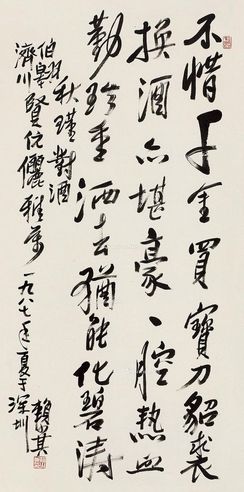 不惜千金買寶刀貂裘
換酒亦堪豪一腔熱血
勤珍重洒去猶能化碧濤
秋瑾對酒
伯翱
濟川賢伉儷雅屬
一九八七年夏于深圳
賴少其